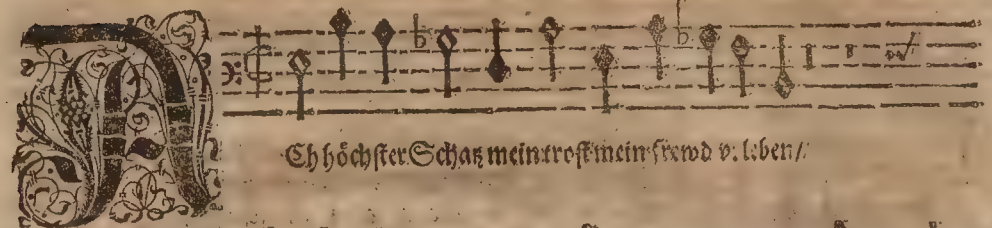 ACh höchster Schatz mein trost mein frewd v. leben/